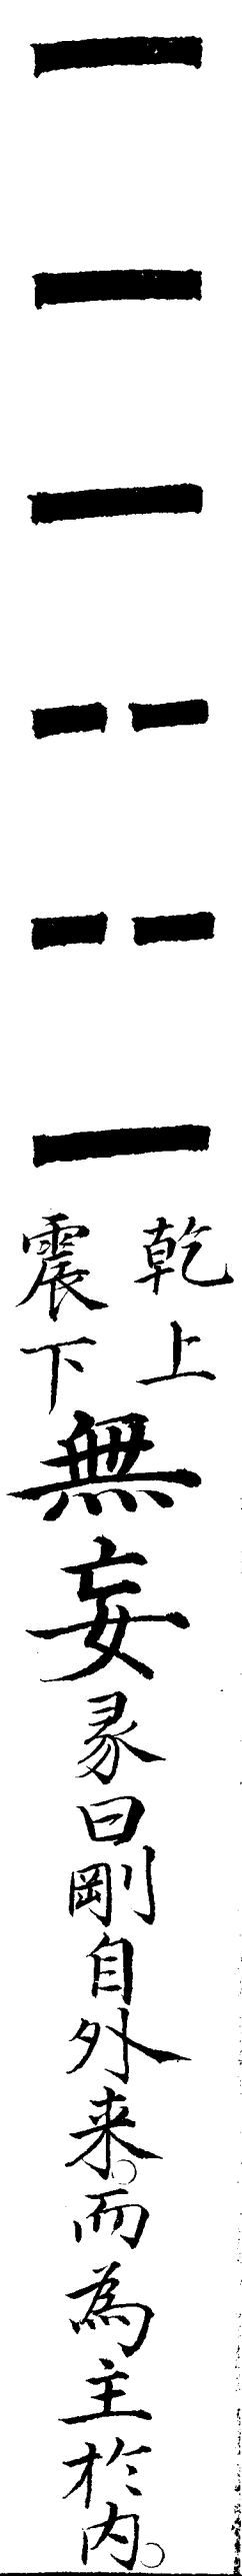 乾上
震下
無妄彖曰剛自外来。而為主於内。